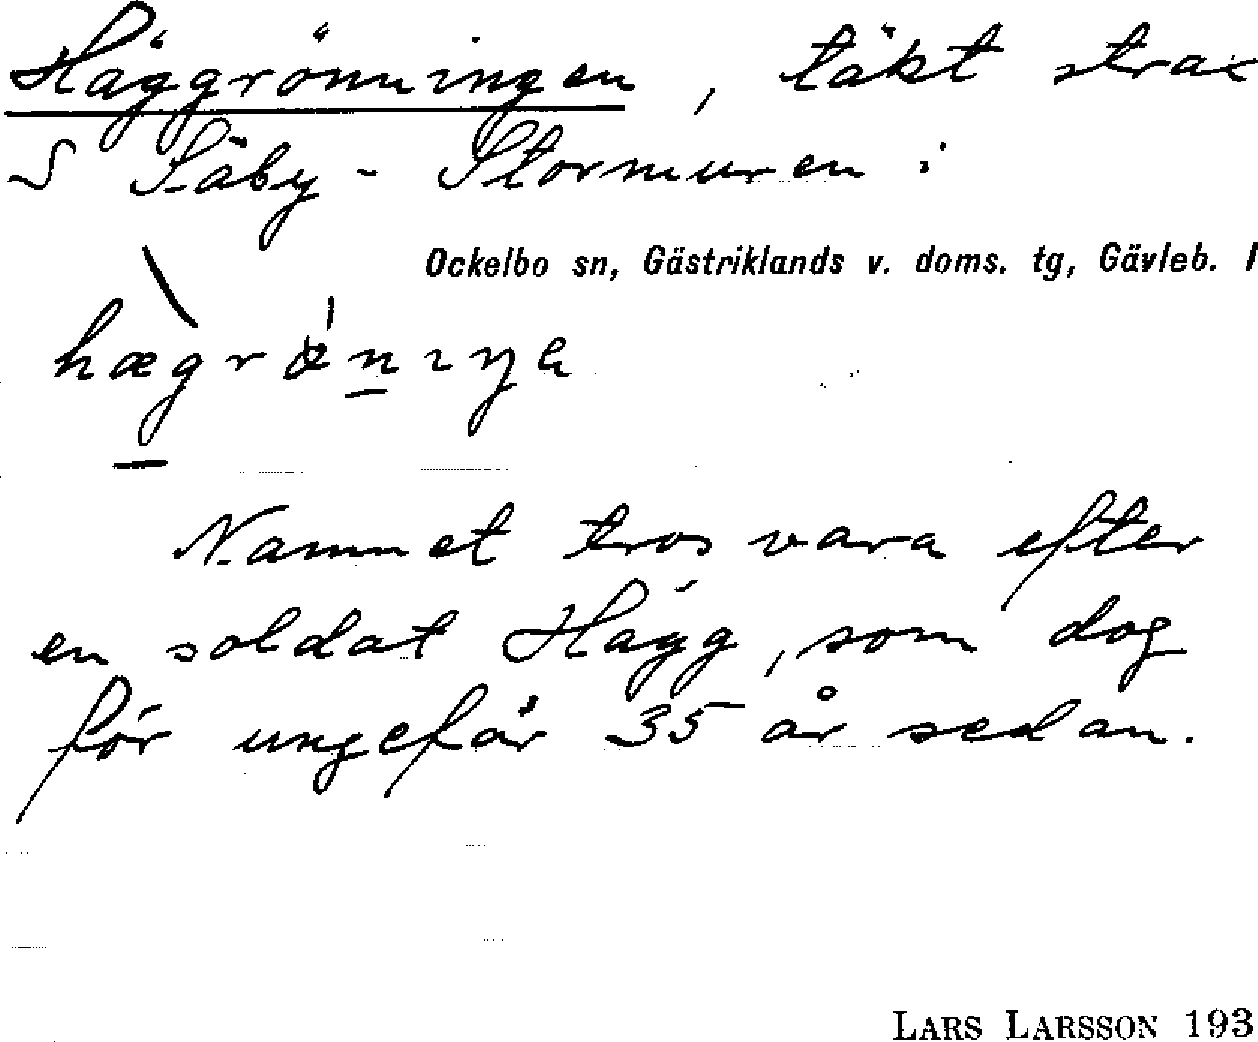 Häggrönningen, täkt strax
S Säby-Stormuren i
Ockelbo sn, Gästriklands v. doms. tg, Gävleb. l
Namnet tros vara efter
en soldat Hägg, som dog
för ungefär 35 år sedan.
LARS LARSSON 193